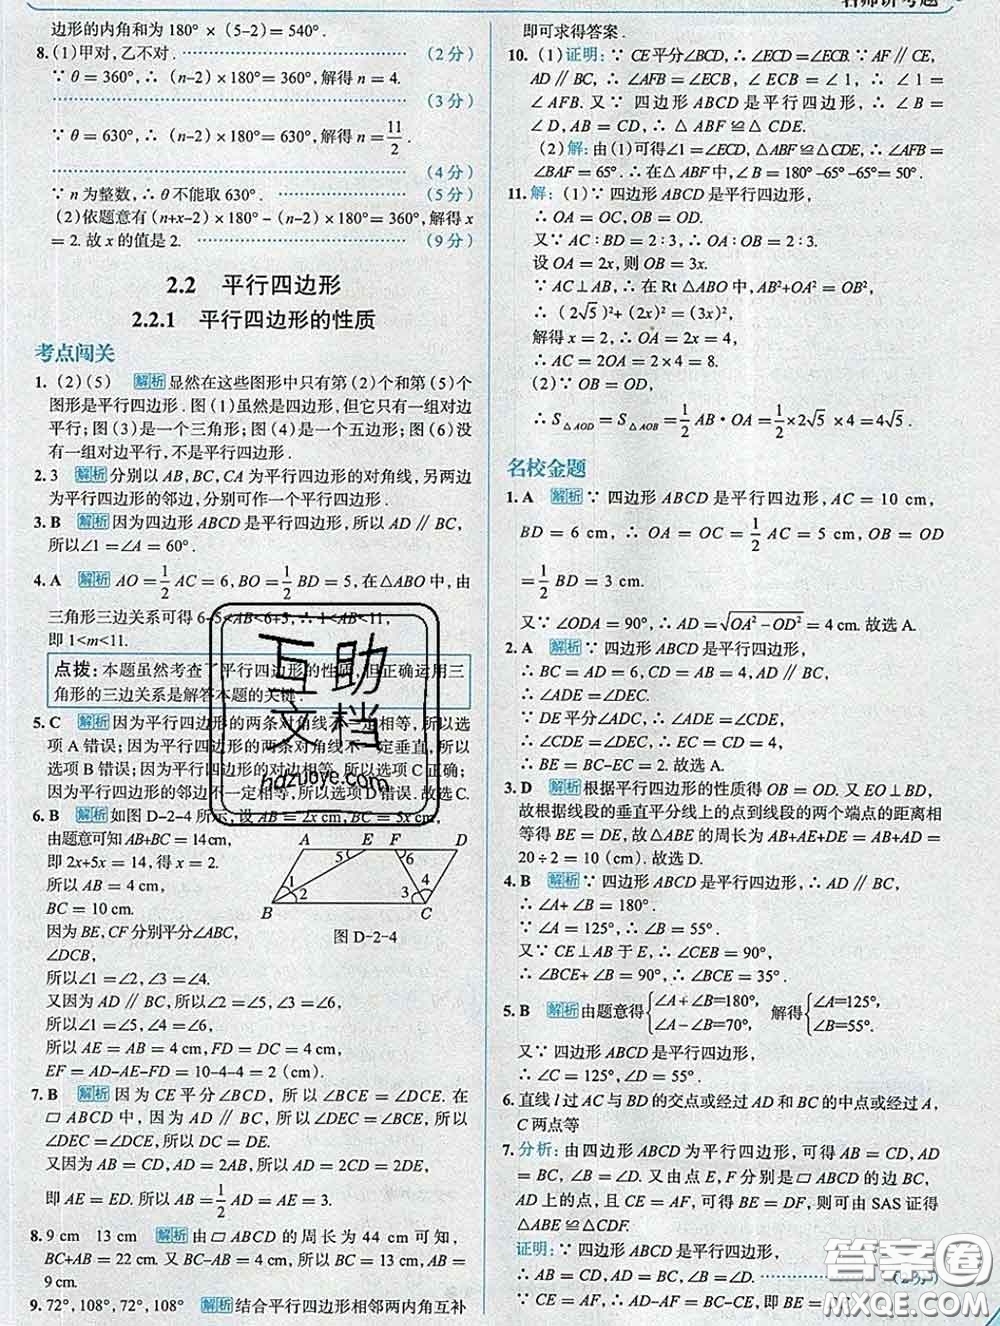 边形的内角和为180° × (5-2)= 540° .
8. (1)甲对,乙不对. (2分)
∵ θ = 360°,∴ (n-2)×180°= 360°,解得 n = 4.
(3分)
∵ θ = 630°,∴ (n-2)×180°= 630°,解得 n = 11/2 .
(4分)
∵ n 为整数,∴ θ 不能取 630° . (5分)
(2)依题意有(n+x-2)×180°-(n-2)×180°= 360°,解得 x
= 2. 故 x 的值是 2. (9分)
2.2 平行四边形
2.2.1 平行四边形的性质
考点闯关
1. (2)(5) 解析 显然在这些图形中只有第(2)个和第(5)个
图形是平行四边形. 图(1)虽然是四边形,但它只有一组对边
平行;图(3)是一个三角形;图(4)是一个五边形;图(6)没
有一组对边平行,不是平行四边形.
2. 3 解析 分别以 AB,BC,CA 为平行四边形的对角线,另两边
为平行四边形的邻边,分别可作一个平行四边形.
3. B 解析 因为四边形 ABCD 是平行四边形,所以 AD ∥ BC,
所以∠1 = ∠A = 60°.
4. A 解析 AO = 1/2 AC = 6,BO = 1/2 BD = 5,在△ABO 中,由
三角形三边关系可得 6-5<AB<6+5,∴ 1<AB<11,
即 1<m<11.
点拨:本题虽然考查了平行四边形的性质,但正确运用三
角形的三边关系是解答本题的关键.
5. C 解析 因为平行四边形的两条对角线不一定相等,所以选
项 A 错误;因为平行四边形的两条对角线不一定垂直,所以
选项 B 错误;因为平行四边形的对边相等,所以选项 C 正确;
因为平行四边形的对角线不一定相等,所以选项 D 错误. 故选 C.
6. B 解析 如图 D-2-4 所示,设 AB = 2x cm,BC = 5x cm,
由题意可知 AB+BC = 14 cm,
即 2x+5x = 14,得 x = 2.
所以 AB = 4 cm,
BC = 10 cm.
因为 BE,CF 分别平分∠ABC,
∠DCB,
A E F D
5 6
1 2 3 4
B C
图 D-2-4
所以∠1 = ∠2,∠3 = ∠4.
又因为 AD ∥ BC,所以∠2 = ∠5,∠3 = ∠6,
所以∠1 = ∠5,∠4 = ∠6,
所以 AE = AB = 4 cm,FD = DC = 4 cm,
EF = AD-AE-FD = 10-4-4 = 2 (cm).
7. B 解析 因为 CE 平分∠BCD,所以∠BCE = ∠DCE. 在
▱ ABCD 中,因为 AD ∥ BC,所以∠DEC = ∠BCE,所以
∠DEC = ∠DCE,所以 DC = DE.
又因为 AB = CD,AD = 2AB,所以 AD = 2CD = 2DE,
即 AE = ED. 所以 AB = 1/2 AD = AE = 3.
8. 9 cm 13 cm 解析 由 ▱ ABCD 的周长为 44 cm 可知,
BC+AB = 22 cm. 又 BC-AB = 4 cm,所以 BC = 13 cm,AB =
9 cm.
9. 72°,108°,72°,108° 解析 结合平行四边形相邻两内角互补
即可求得答案.
10. (1)证明:∵ CE 平分∠BCD,∴ ∠ECD =∠ECB. ∵ AF ∥ CE,
AD ∥ BC,∴ ∠AFB = ∠ECB,∠ECB = ∠1,∴ ∠1 =
∠AFB. 又∵ 四边形 ABCD 是平行四边形,∴ ∠B =
∠D,AB = CD,∴ △ABF ≌△CDE.
(2)解:由(1)可得∠1 =∠ECD,△ABF ≌△CDE,∴ ∠AFB =
∠BAF = 65°. ∴ 在△ABF 中,∠B = 180°-65°-65°= 50°.
11. 解:(1)∵ 四边形 ABCD 是平行四边形,
∴ OA = OC,OB = OD.
又∵ AC∶BD = 2∶3,∴ OA∶OB = 2∶3.
设 OA = 2x,则 OB = 3x.
∵ AC⊥AB,∴ 在 Rt △ABO 中,AB²+OA² = OB²,
∴ (2√5)²+(2x)² = (3x)²,
解得 x = 2,∴ OA = 2x = 4,
∴ AC = 2OA = 2×4 = 8.
(2)∵ OB = OD,
∴ S△AOD = S△AOB = 1/2 AB·OA = 1/2 ×2√5 ×4 = 4√5.
名校金题
1. A 解析 ∵ 四边形 ABCD 是平行四边形,AC = 10 cm,
BD = 6 cm,∴ OA = OC = 1/2 AC = 5 cm,OB = OD
= 1/2 BD = 3 cm.
又∵ ∠ODA = 90°,∴ AD = √(OA²-OD²) = 4 cm. 故选 A.
2. A 解析 ∵ 四边形 ABCD 是平行四边形,
∴ BC = AD = 6,CD = AB = 4,AD ∥ BC,
∴ ∠ADE = ∠DEC.
∵ DE 平分∠ADC,∴ ∠ADE = ∠CDE,
∴ ∠CDE = ∠DEC,∴ EC = CD = 4,
∴ BE = BC-EC = 2. 故选 A.
3. D 解析 根据平行四边形的性质得 OB = OD. 又 EO⊥BD,
故根据线段的垂直平分线上的点到线段的两个端点的距离相
等得 BE = DE,故△ABE 的周长为 AB+AE+DE = AB+AD =
20÷2 = 10 (cm). 故选 D.
4. B 解析 ∵ 四边形 ABCD 是平行四边形,∴ AD ∥ BC,
∴ ∠A+ ∠B = 180°.
∵ ∠A = 125°,∴ ∠B = 55°.
又∵ CE⊥AB 于 E,∴ ∠CEB = 90°,
∴ ∠BCE+ ∠B = 90°,∴ ∠BCE = 35°.
5. B 解析 由题意得{∠A+∠B=180°, ∠A-∠B=70°, 解得{∠A=125°, ∠B=55°.
又∵ 四边形 ABCD 是平行四边形,
∴ ∠C = ∠A = 125°.
6. 直线 l 过 AC 与 BD 的交点或经过 AD 和 BC 的中点或经过 A,
C 两点等
7. 分析:由四边形 ABCD 为平行四边形,可得 AB = CD,
BC = AD,∠B = ∠D. 又由点 E,F 分别是 ▱ ABCD 的边 BC,
AD 上的点,且 CE = AF,可得 BE = DF,则可由 SAS 证得
△ABE ≌△CDF.
证明:∵ 四边形 ABCD 是平行四边形,
∴ AB = CD,BC = AD,∠B = ∠D. (2分)
∵ CE = AF,∴ AD-AF = BC-CE,即
互助
文档
hdzuoye.com
答案圈
MXQE.COM